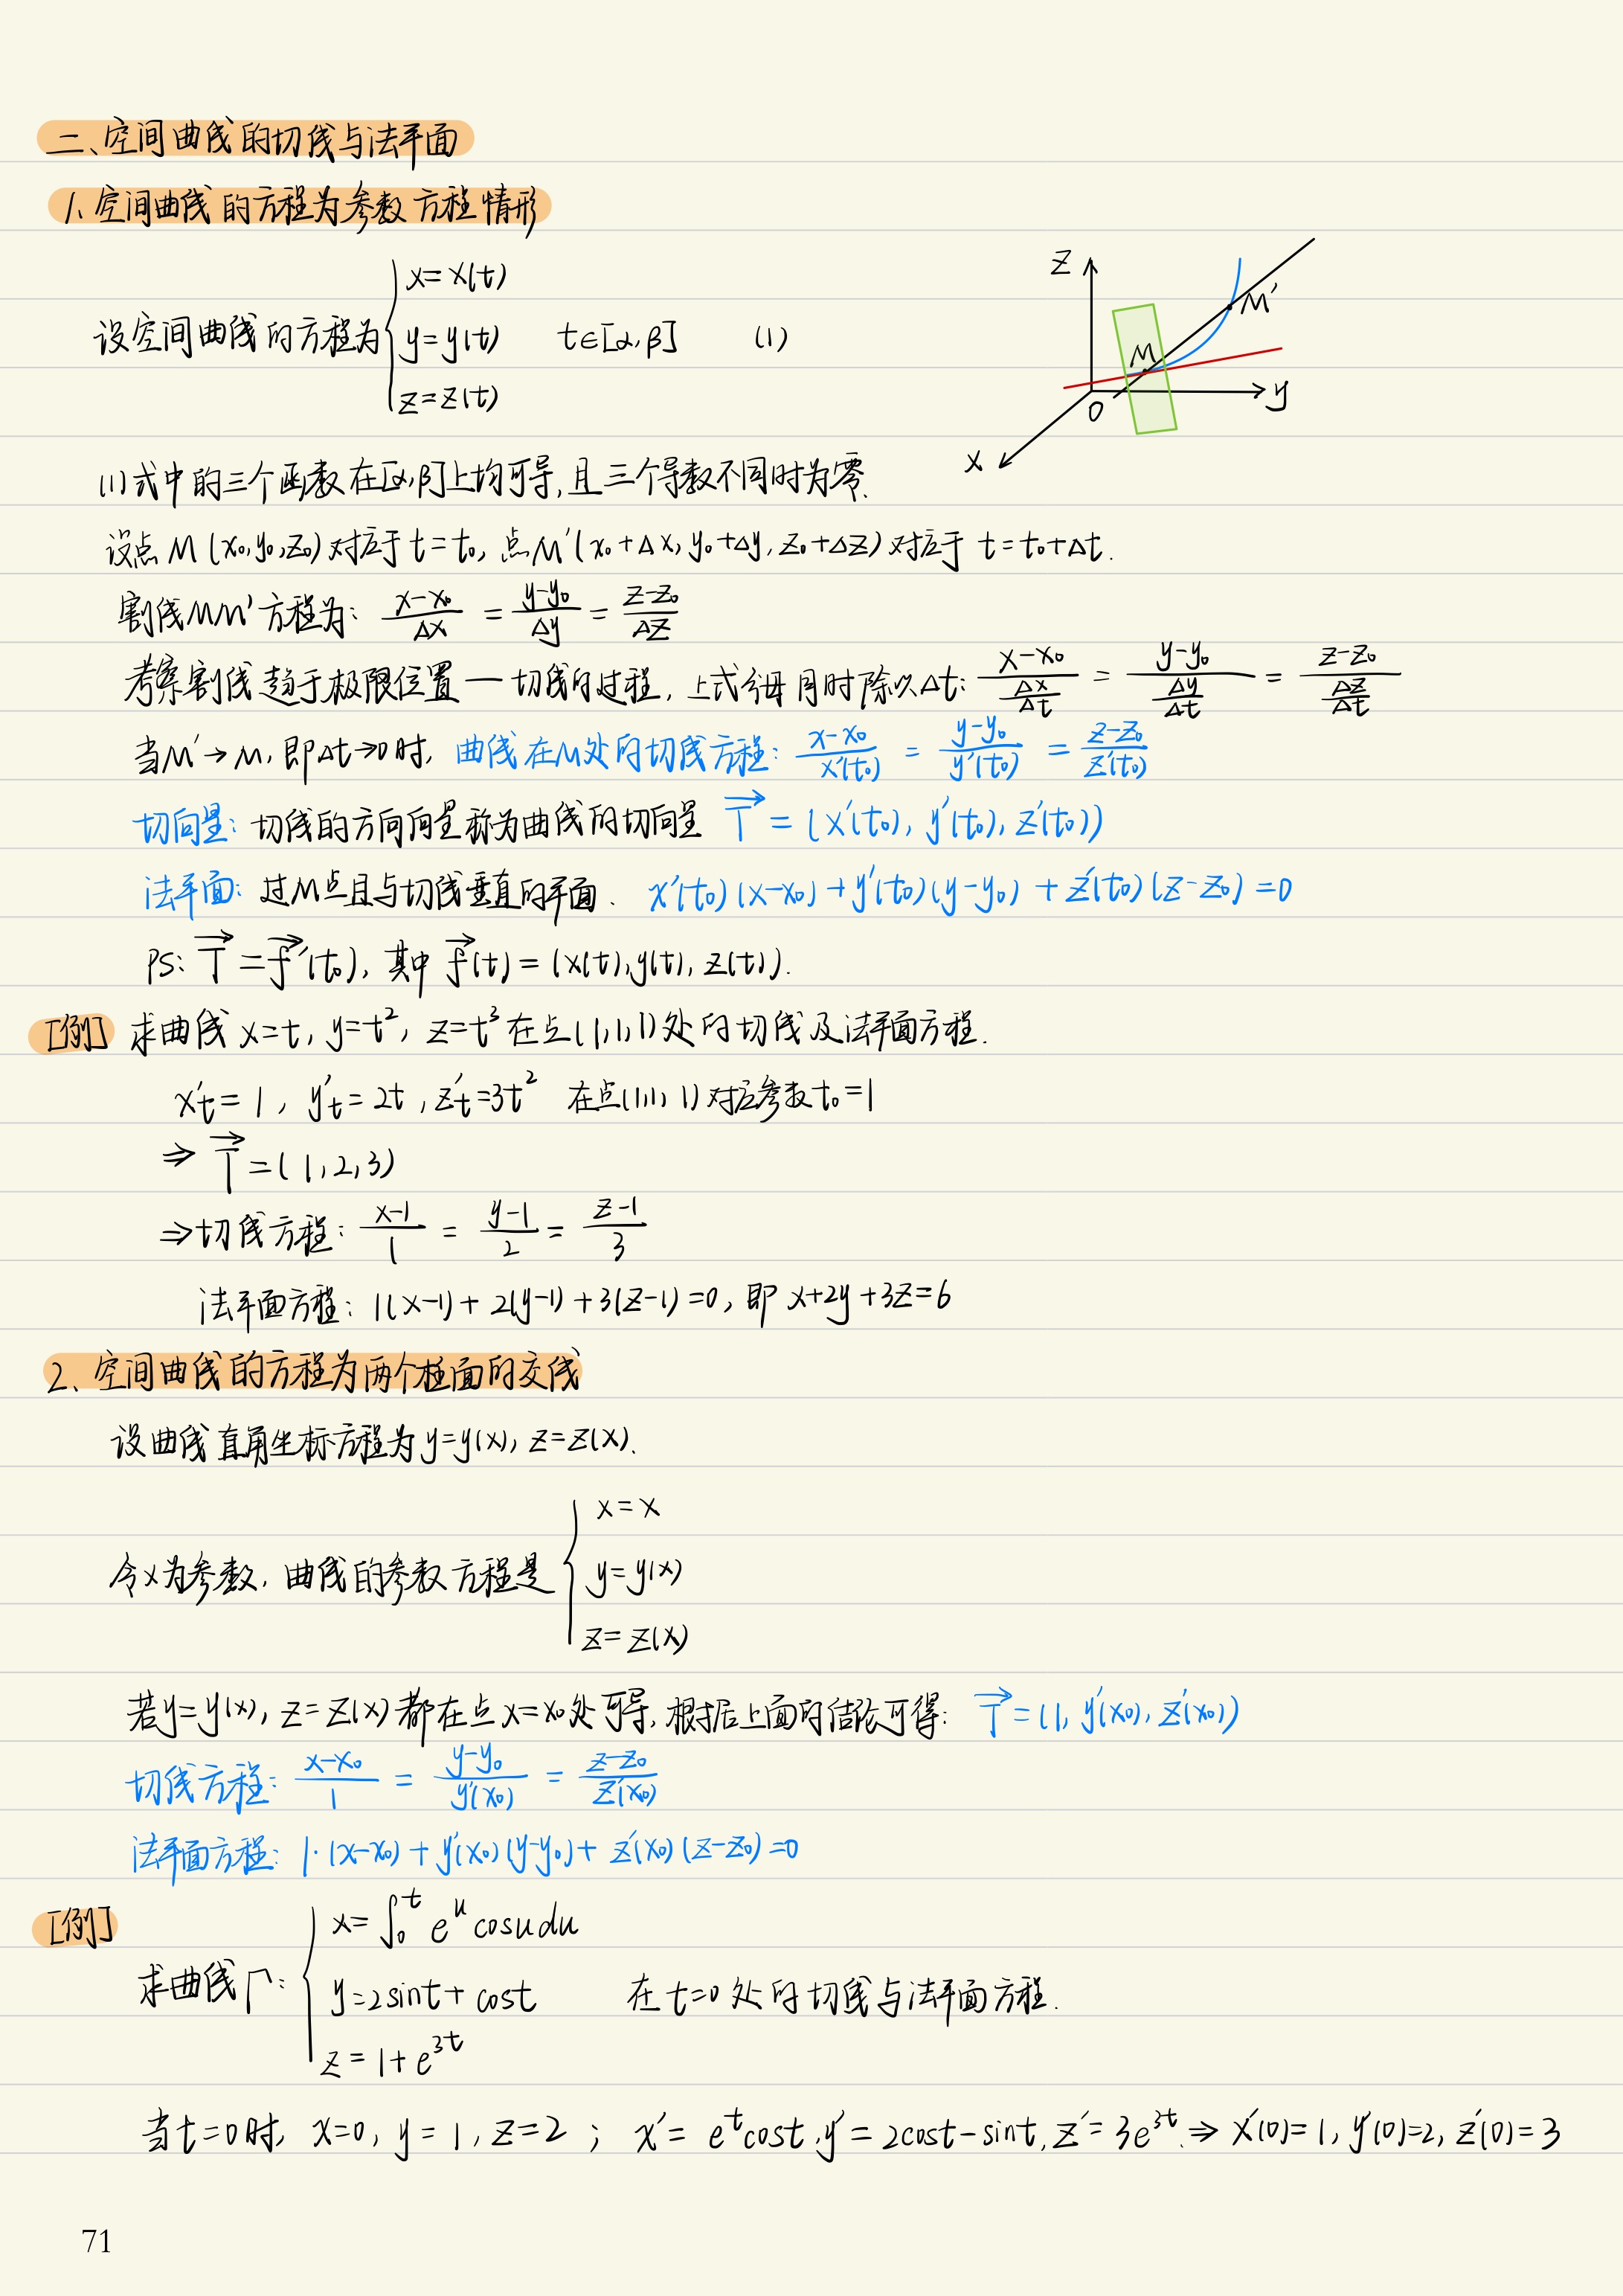 二、空间曲线的切线与法平面
1、空间曲线的方程为参数方程情形
x=x(t)
设空间曲线的方程为 { y=y(t)  t∈[α,β]  (1)
z=z(t)
Z
M'
M
O
y
x
(1)式中的三个函数在[α,β]上均可导,且三个导数不同时为零.
设点M(x₀,y₀,z₀)对应于t=t₀,点M'(x₀+Δx,y₀+Δy,z₀+Δz)对应于 t=t₀+Δt.
割线MM'方程为: (x-x₀)/Δx = (y-y₀)/Δy = (z-z₀)/Δz
考察割线趋于极限位置—切线的过程,上式分母同时除以Δt: (x-x₀)/(Δx/Δt) = (y-y₀)/(Δy/Δt) = (z-z₀)/(Δz/Δt)
当M'→M,即Δt→0时,曲线在M处的切线方程: (x-x₀)/x'(t₀) = (y-y₀)/y'(t₀) = (z-z₀)/z'(t₀)
切向量: 切线的方向向量称为曲线的切向量 T⃗ = (x'(t₀), y'(t₀), z'(t₀))
法平面: 过M点且与切线垂直的平面. x'(t₀)(x-x₀)+y'(t₀)(y-y₀)+z'(t₀)(z-z₀)=0
PS: T⃗=f⃗'(t₀), 其中 f⃗(t)=(x(t),y(t),z(t)).
[例] 求曲线 x=t, y=t², z=t³ 在点(1,1,1)处的切线及法平面方程.
x't=1, y't=2t, z't=3t² 在点(1,1,1)对应参数t₀=1
⇒ T⃗=(1,2,3)
⇒切线方程: (x-1)/1 = (y-1)/2 = (z-1)/3
法平面方程: 1(x-1)+2(y-1)+3(z-1)=0, 即 x+2y+3z=6
2、空间曲线的方程为两个柱面的交线
设曲线直角坐标方程为y=y(x), z=z(x).
x=x
令x为参数, 曲线的参数方程是 { y=y(x)
z=z(x)
若y=y(x), z=z(x)都在点x=x₀处可导,根据上面的结论可得: T⃗=(1, y'(x₀), z'(x₀))
切线方程: (x-x₀)/1 = (y-y₀)/y'(x₀) = (z-z₀)/z'(x₀)
法平面方程: 1·(x-x₀)+y'(x₀)(y-y₀)+z'(x₀)(z-z₀)=0
[例]
x=∫₀ᵗ eᵘ cosu du
求曲线Γ: { y=2sint+cost  在t=0处的切线与法平面方程.
z=1+e³ᵗ
当t=0时, x=0, y=1, z=2 ; x'=eᵗcost, y'=2cost-sint, z'=3e³ᵗ.⇒ x'(0)=1, y'(0)=2, z'(0)=3
71